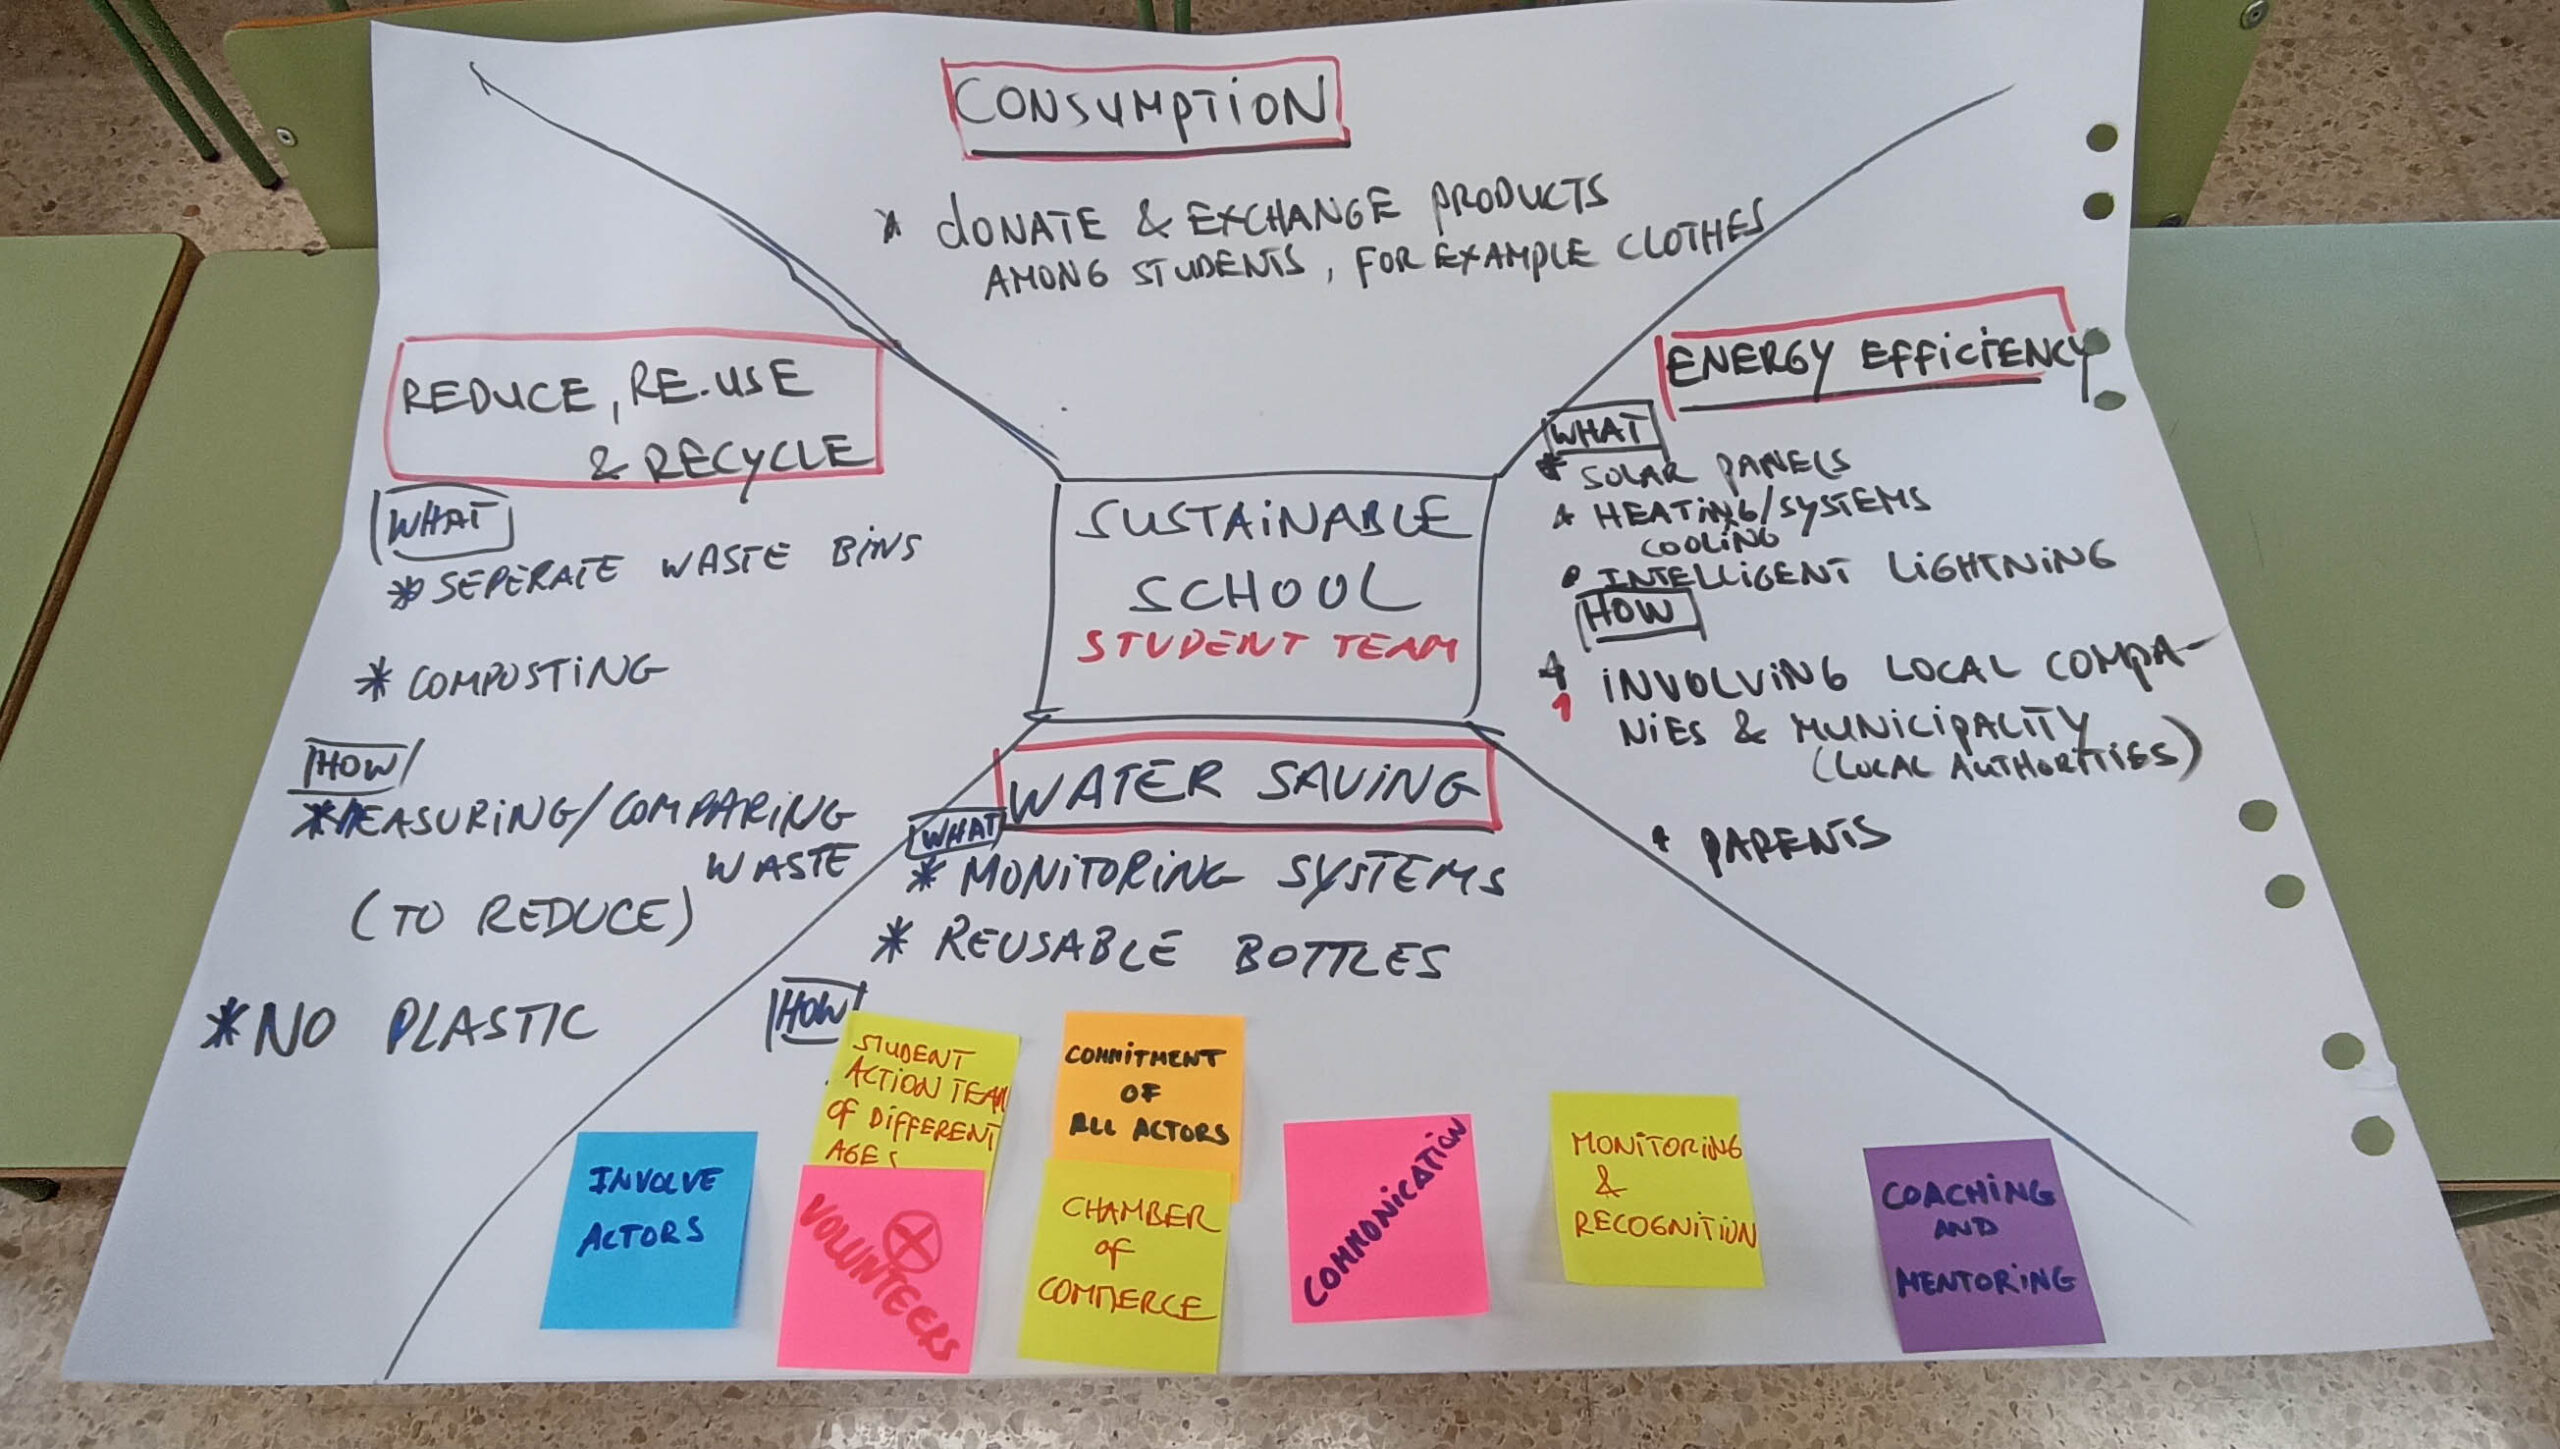 CONSUMPTION
* DONATE & EXCHANGE PRODUCTS
AMONG STUDENTS, FOR EXAMPLE CLOTHES
REDUCE, RE-USE
& RECYCLE
WHAT
* SEPERATE WASTE BINS
* COMPOSTING
HOW
* MEASURING/COMPARING
WASTE
(TO REDUCE)
* NO PLASTIC
SUSTAINABLE
SCHOOL
STUDENT TEAM
ENERGY EFFICIENCY
WHAT
* SOLAR PANELS
* HEATING/SYSTEMS
COOLING
* INTELLIGENT LIGHTNING
HOW
* INVOLVING LOCAL COMPA-
NIES & MUNICIPALITY
(LOCAL AUTHORITIES)
* PARENTS
WATER SAVING
WHAT
* MONITORING SYSTEMS
* REUSABLE BOTTLES
HOW
STUDENT
ACTION TEAM
OF DIFFERENT
AGES
COMMITMENT
OF
ALL ACTORS
INVOLVE
ACTORS
VOLUNTEERS
CHAMBER
OF
COMMERCE
COMMONICATION
MONITORING
&
RECOGNITION
COACHING
AND
MENTORING